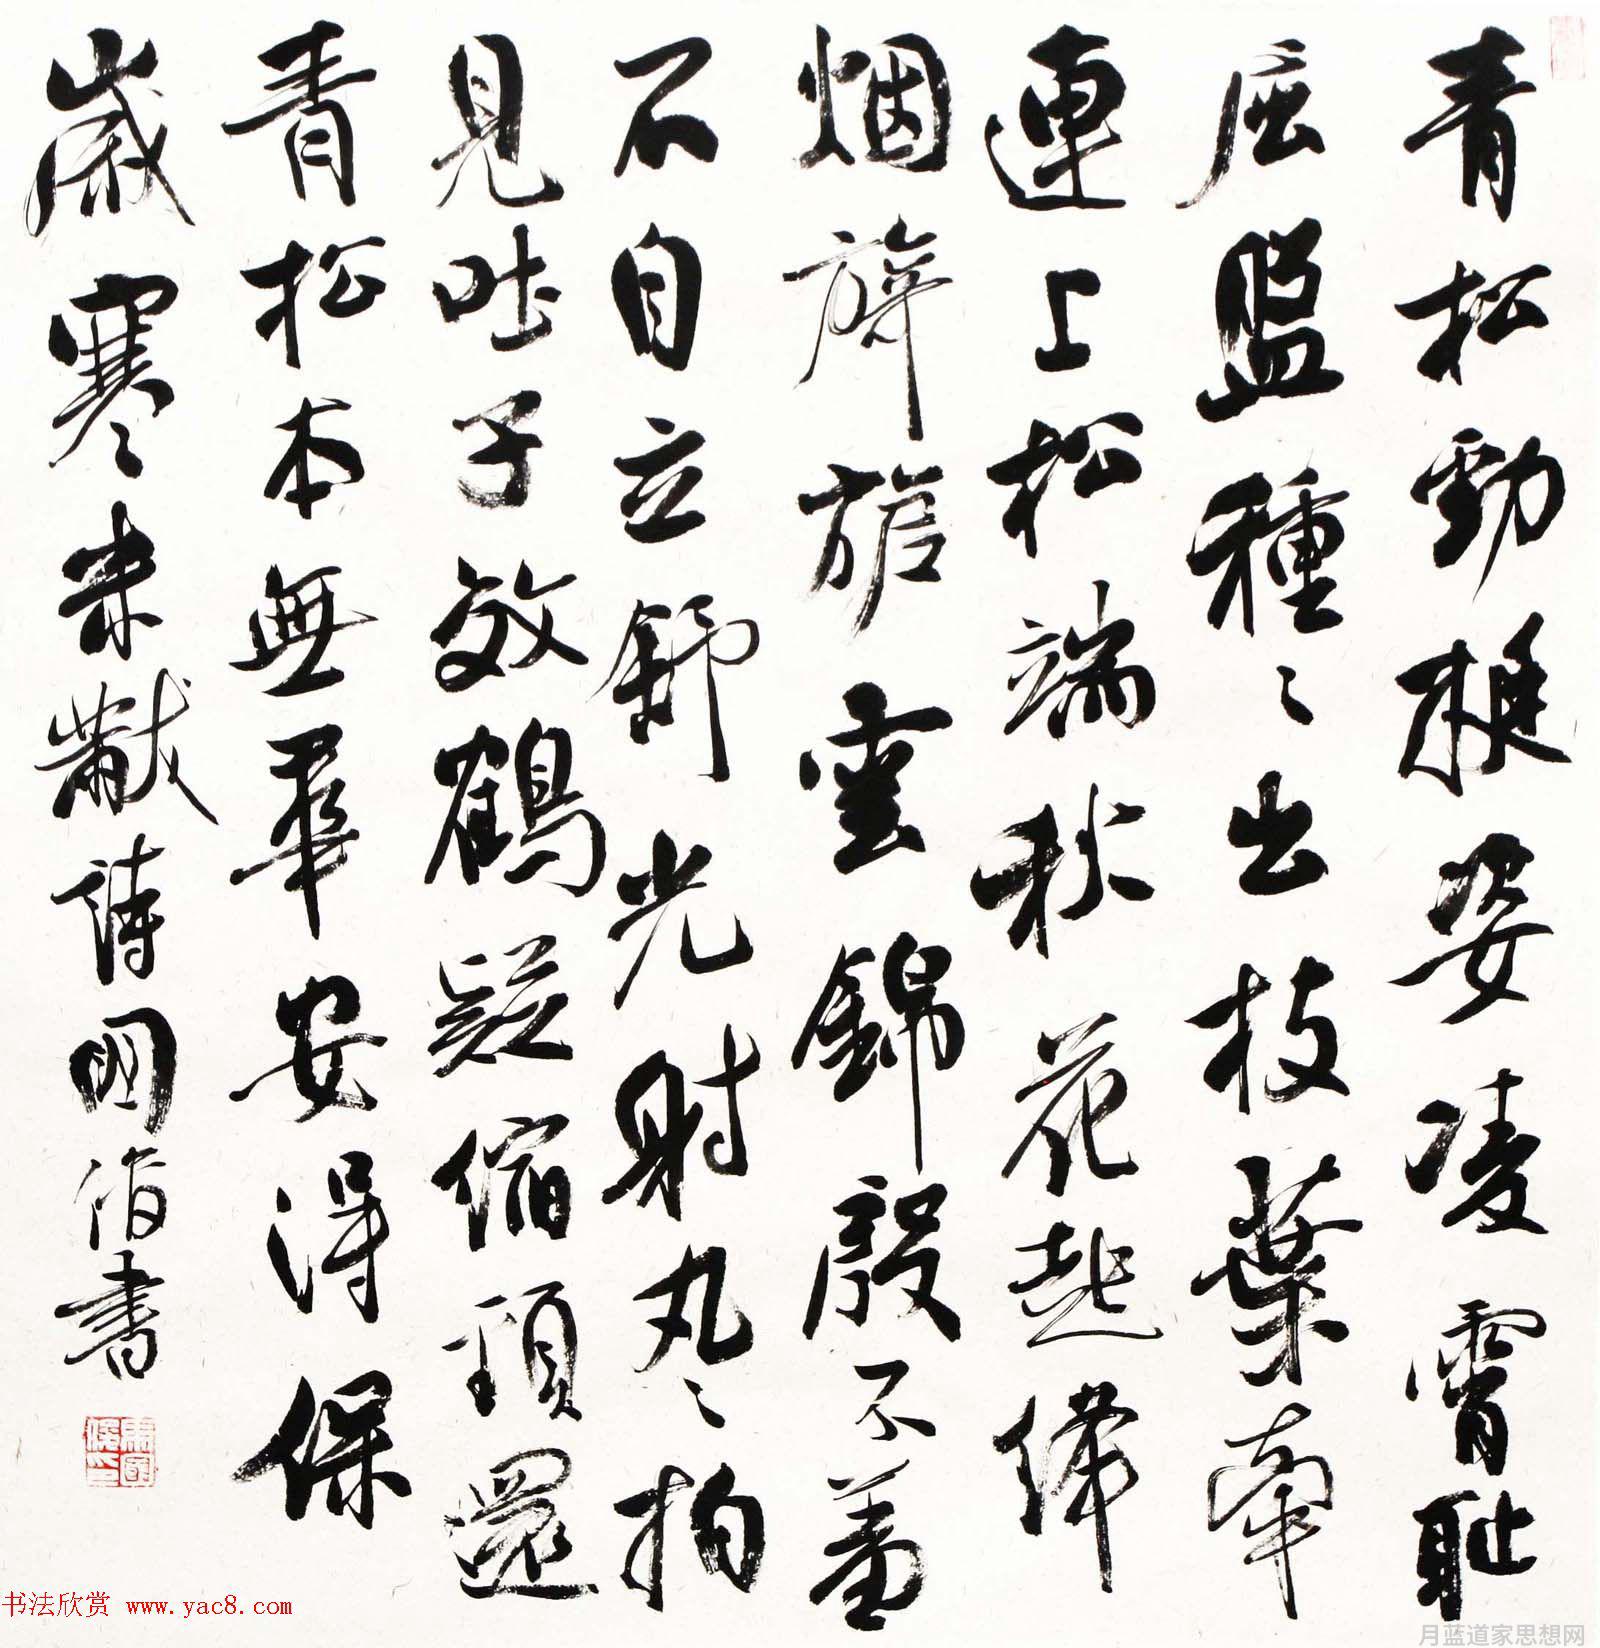 青松勁挺姿凌霄耻
屈盤種〻出枝葉牽
連上松端秋花起絳
烟旖旎雲錦殷不羞
不自立舒光射丸〻柏
見吐子效鶴疑縮頸還
青松本無華安得保
歲寒米黻詩國書
书法欣赏 www.yac8.com
月蓝道家思想网